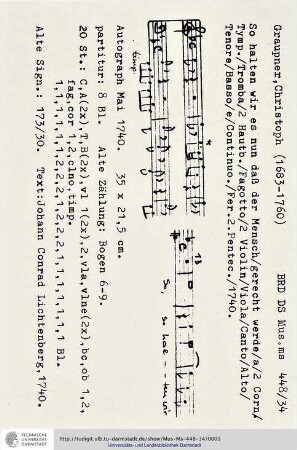 Graupner,Christoph (1683-1760) BRD DS Mus.ms 448/34
So halten wir es nun daß der Mensch/gerecht werde/a/2 Corn/
Tymp./Tromba/2 Hautb./Fagotto/2 Violin/Viola/Canto/Alto/
Tenore/Basso/e/Continuo./Fer.2.Pentec./1740.
13
timp
So, so hal - ten wir
Autograph Mai 1740. 35 x 21,5 cm.
partitur: 8 Bl. Alte Zählung: Bogen 6-9.
20 St.: C,A(2x),T,B(2x),vl 1(2x),2,vla,vlne(2x),bc,ob 1,2,
fag,cor 1,2,clno,timp.
1,1,1,1,1,1,2,2,1,2,1,2,2,1,1,1,1,1,1,1 Bl.
Alte Sign.: 173/30. Text:Johann Conrad Lichtenberg,1740.
TECHNISCHE
UNIVERSITÄT
DARMSTADT
http://tudigit.ulb.tu-darmstadt.de/show/Mus-Ms-448-34/0001
Universitäts- und Landesbibliothek Darmstadt